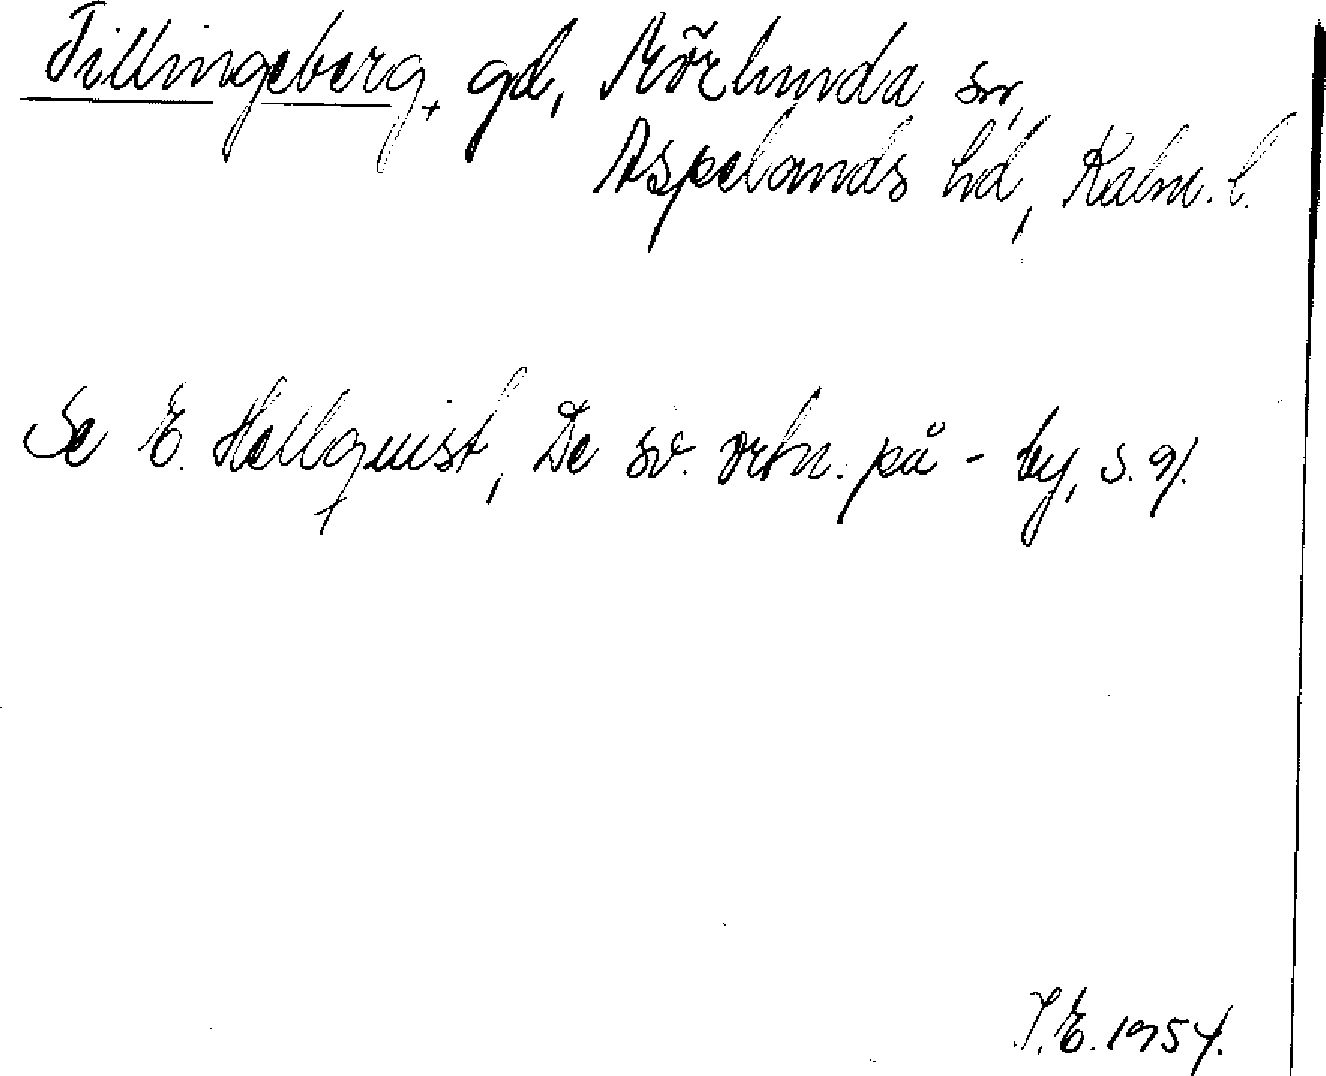 Tillingeberg, gd, Mörlunda sn,
Aspelands hd, Kalm. l.
Se E. Hellquist, De sv. ortn. på - by, s. 91.
J.E. 1954.